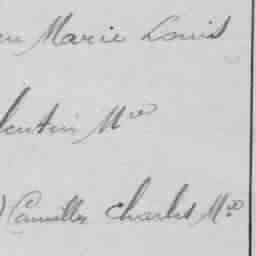 Marie Louis
lentin Mie
Camille Charles Mie